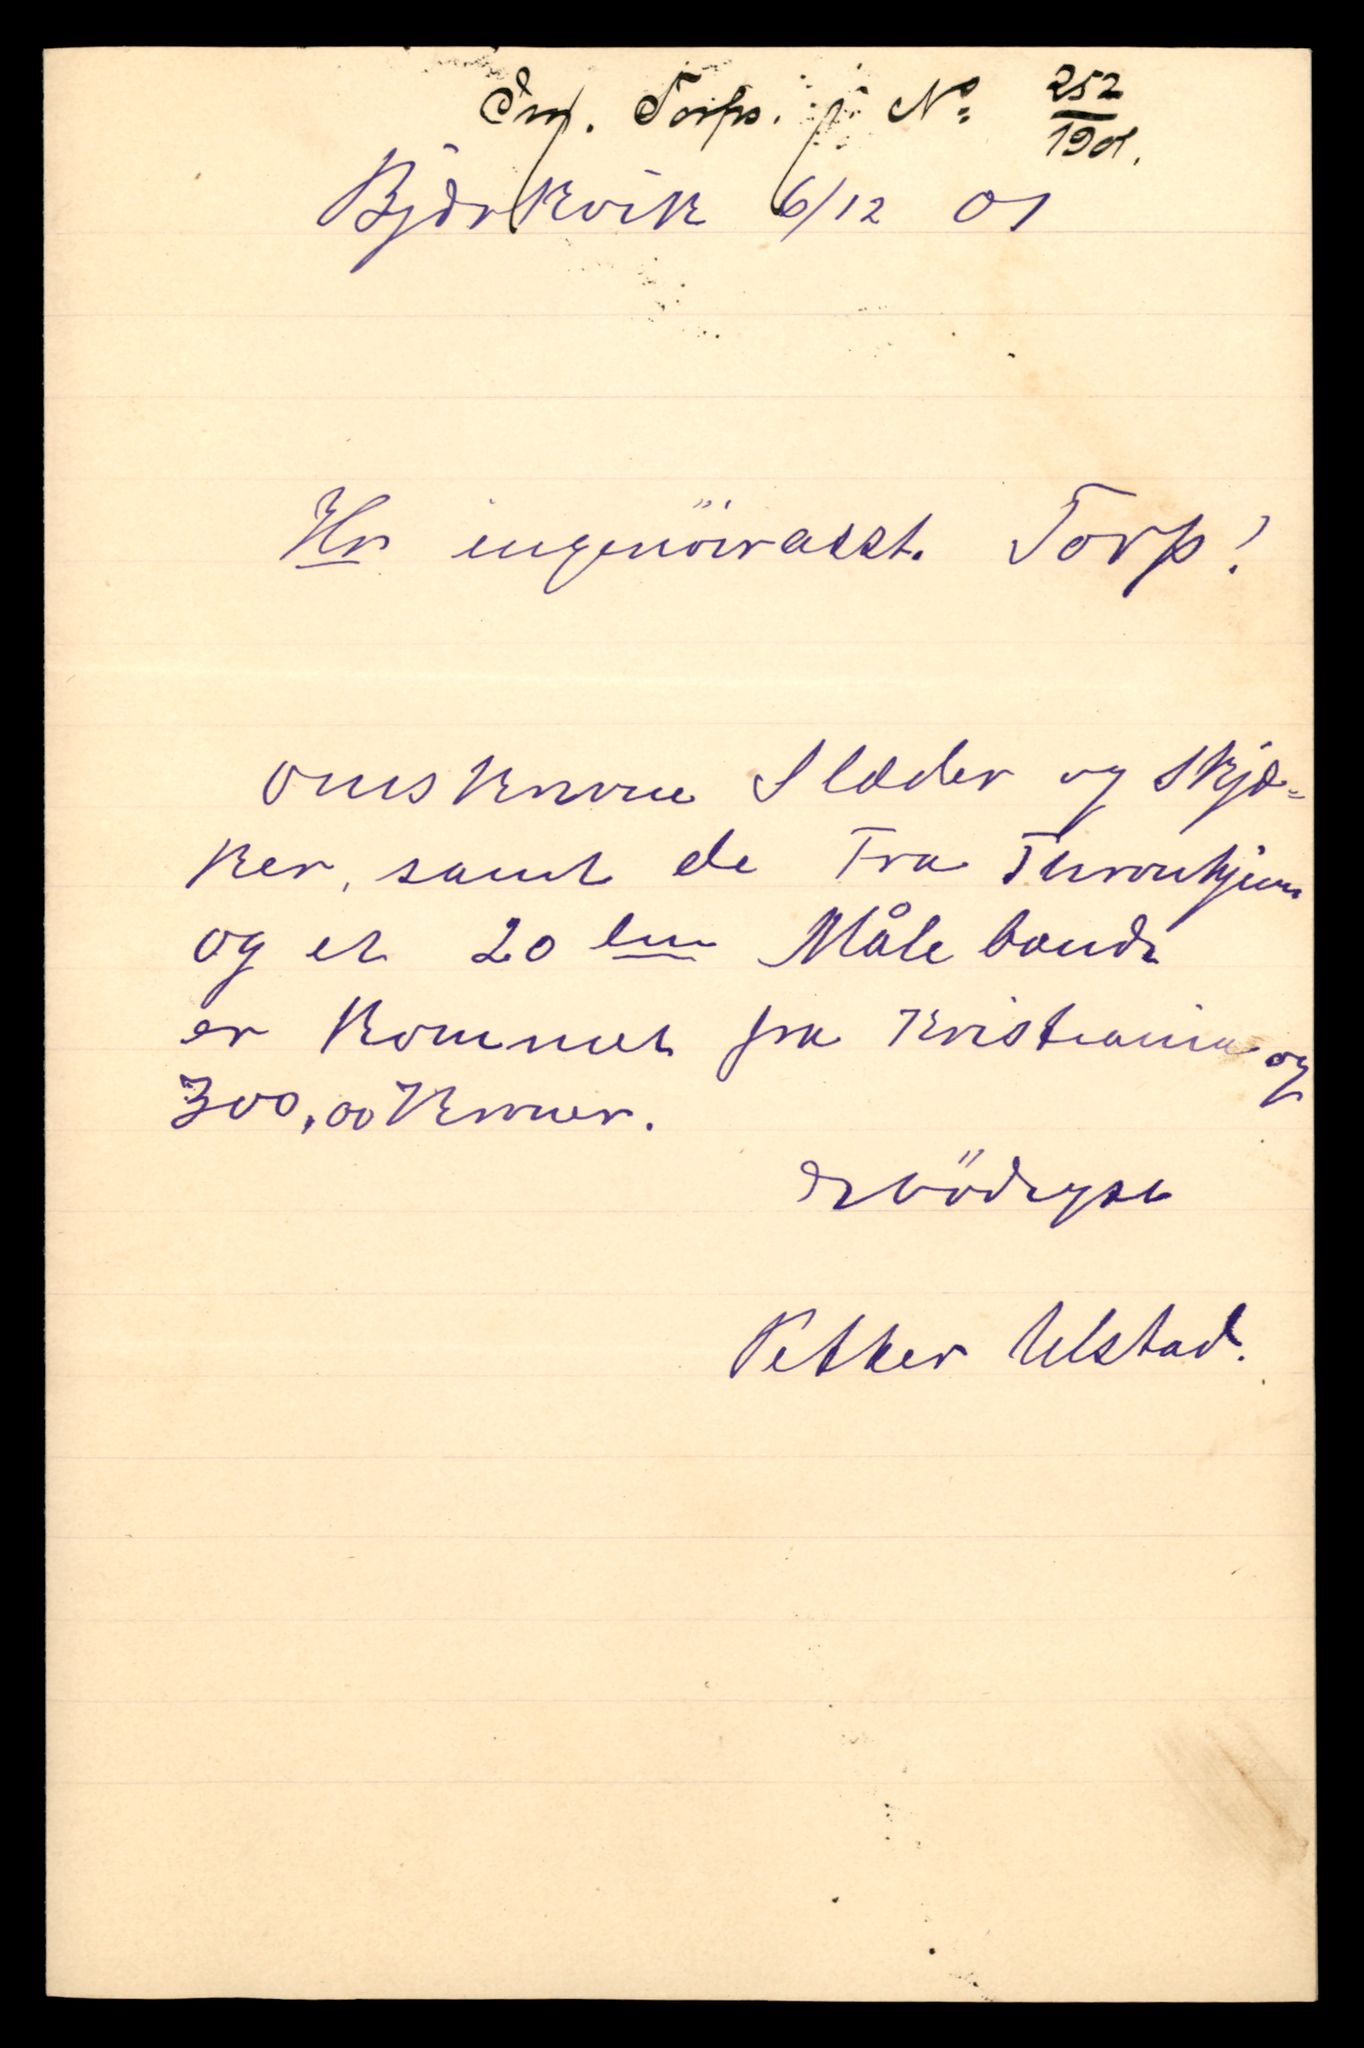 Ing. Torps. j N° 252/1901.
Bjerkvik 6/12 01
Hr ingeniörasst. Torp!
omskrevne Slæder og skjæ-
ker, samt de Fra Thronhjem
og et 20 lm Målebånd
er kommet fra Kristiania og
300,00 Kroner.
ærbödigst
Petter Ulstad.